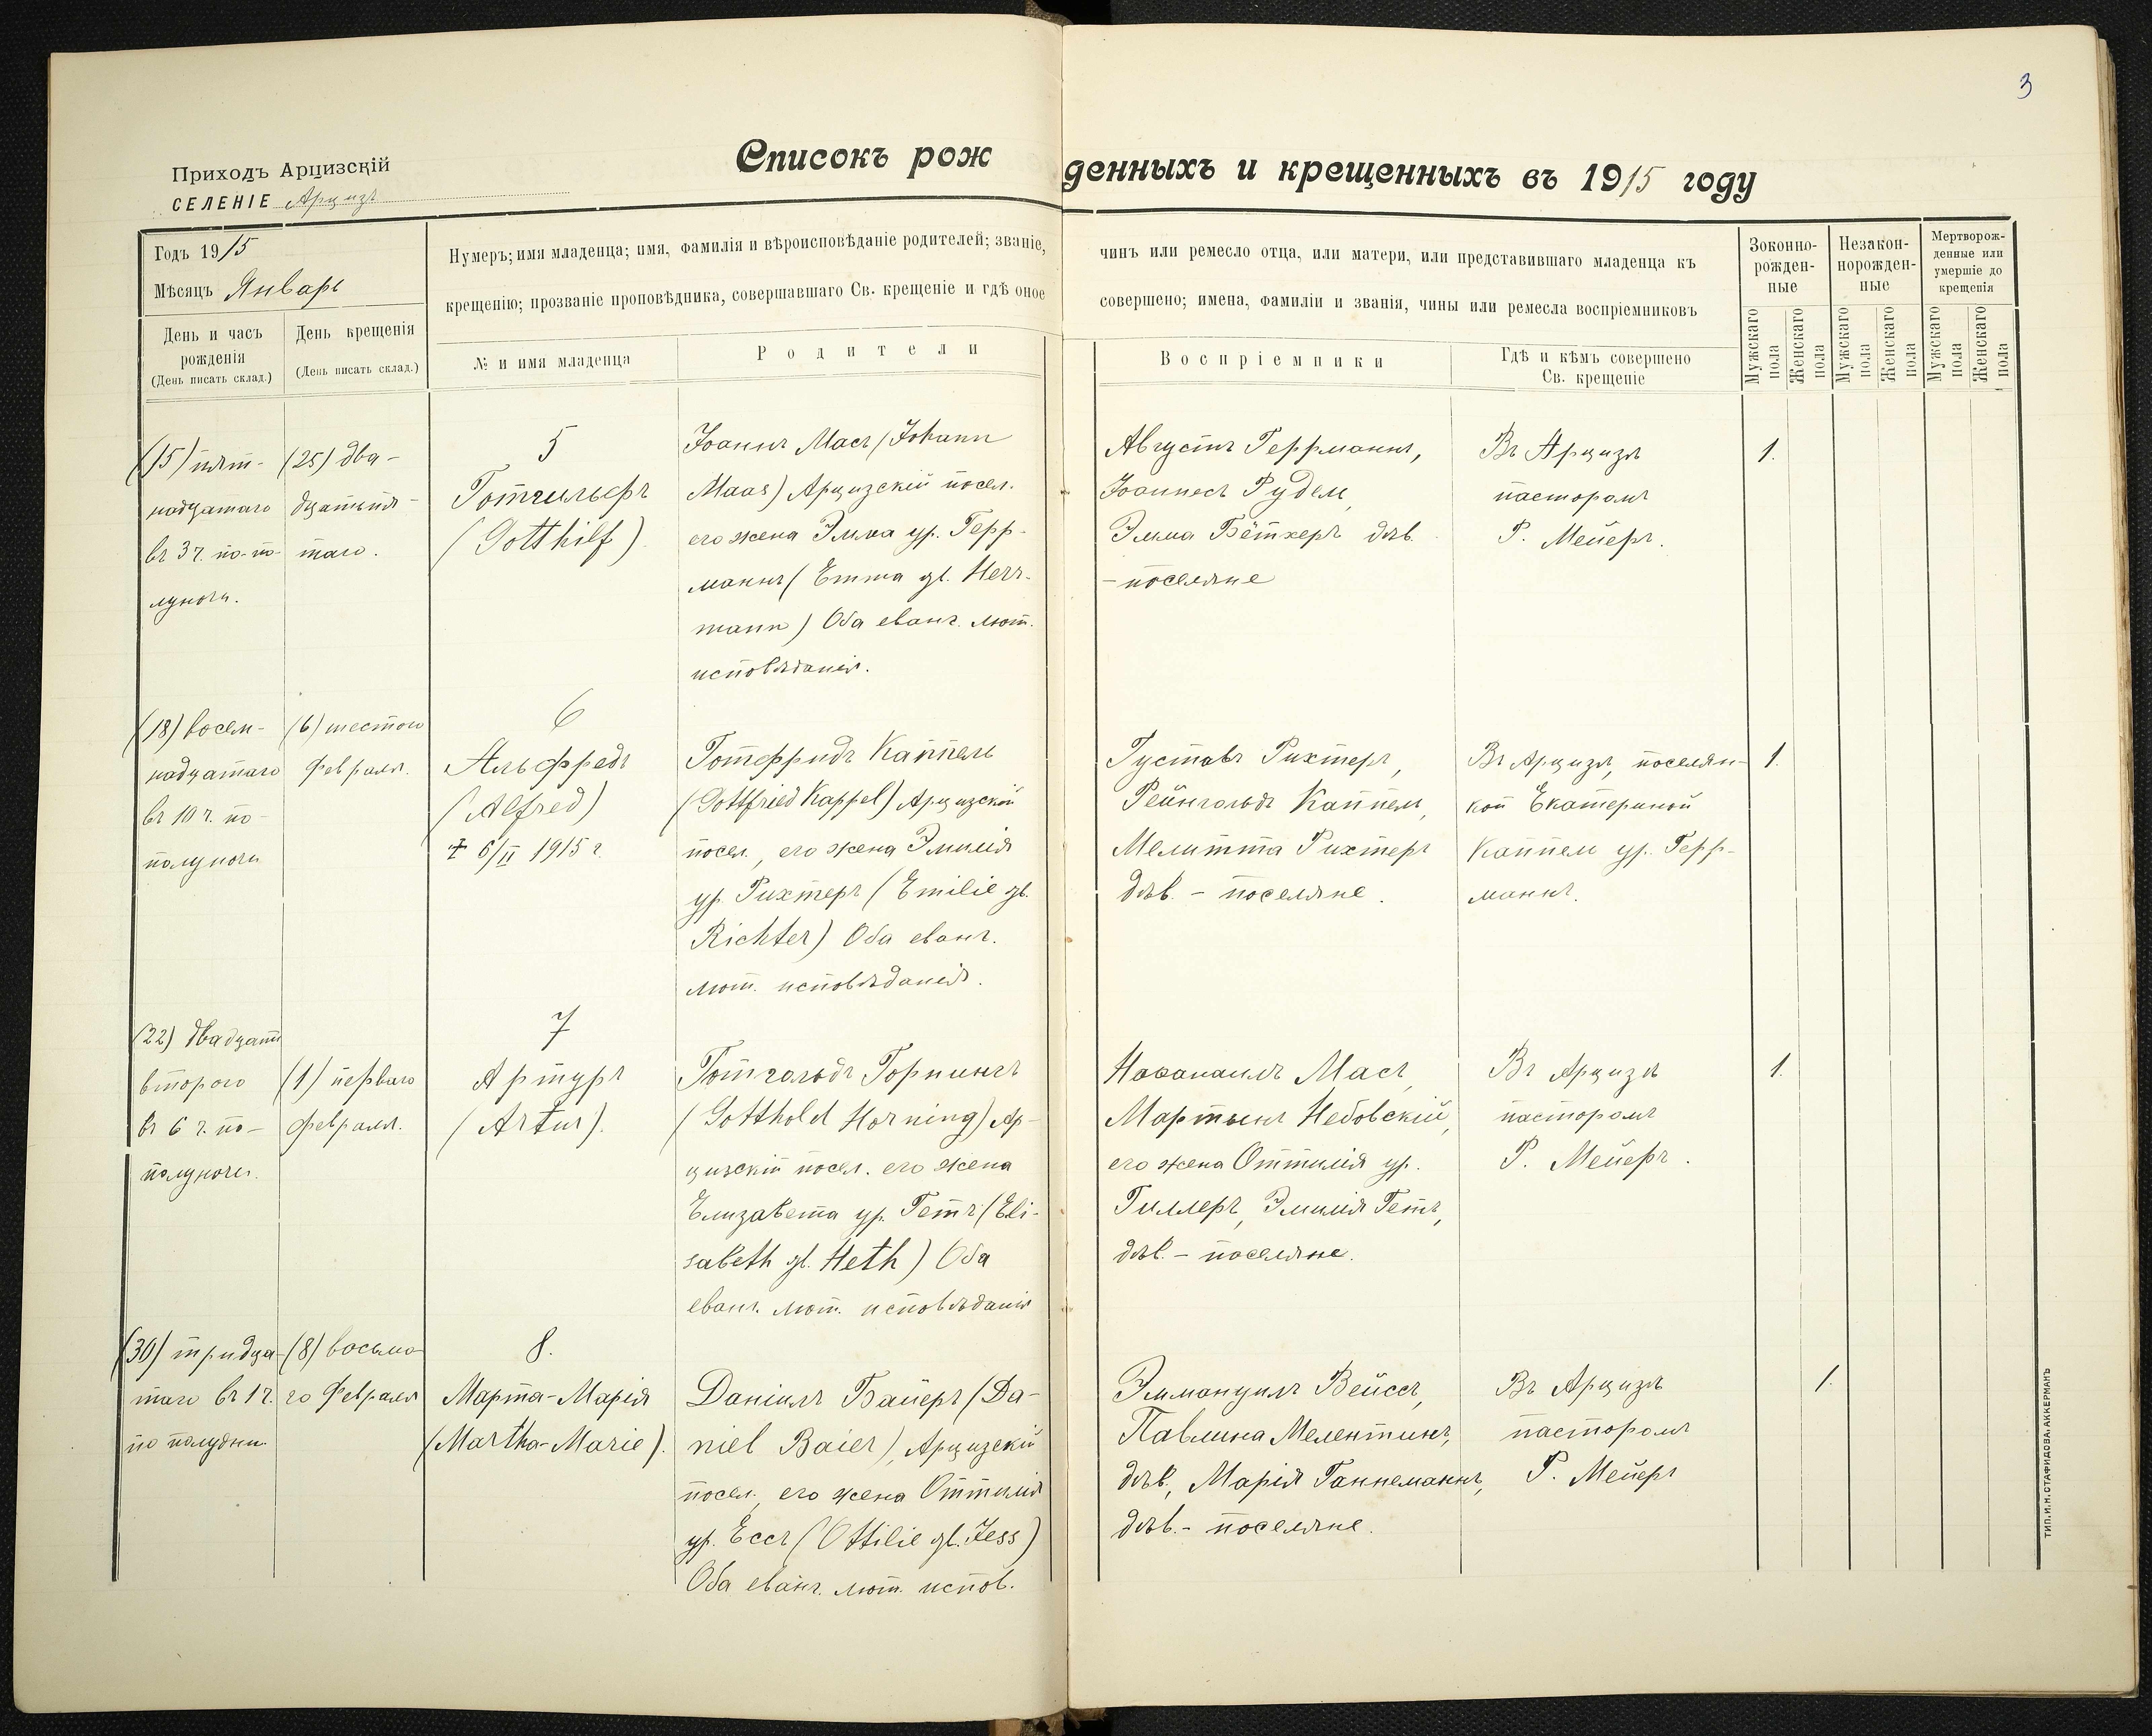 3
Приходъ Арцизскій
СЕЛЕНІЕ Арцизъ
Списокъ рож
денныхъ и крещенныхъ въ 1915 году
Годъ 1915
Мѣсяцъ Январь
День и часъ
рожденія
(День писать склад.)
День крещенія
(День писать склад.)
Нумеръ; имя младенца; имя, фамилія и вѣроисповѣданіе родителей; званіе,
крещенію; прозваніе проповѣдника, совершавшаго Св. крещеніе и гдѣ оное
№ и имя младенца
Родители
чинъ или ремесло отца, или матери, или представившаго младенца къ
совершено; имена, фамиліи и званія, чины или ремесла воспріемниковъ
Воспріемники
Гдѣ и кѣмъ совершено
Св. крещеніе
Зоконно-
рожден-
ные
Незакон-
норожден-
ные
Мертворож-
денные или
умершіе до
крещенія
Мужскаго
пола
Женскаго
пола
Мужскаго
пола
Женскаго
пола
Мужскаго
пола
Женскаго
пола
(15) пят-
надцатаго
въ 3 ч. по-по-
луночи.
(25) два-
дцатьпя-
таго.
5
Готгильфъ
(Gotthilf)
Іоаннъ Масъ (Johann
Maas) Арцизскій посел.
его жена Эмма ур. Герр-
маннъ (Emma gb. Herr-
mann) Оба еванг. лют.
исповѣданія.
Августъ Геррманнъ,
Іоаннесъ Рудель,
Эмма Бёткеръ дѣв.
-поселяне
Въ Арцизѣ
пасторомъ
Р. Мейеръ.
1.
(18) восем-
надцатаго
въ 10 ч. по-
полуночи
(6) шестого
Февраля.
6
Альфредъ
(Alfred)
+ 6/II 1915 г.
Готфридъ Каппель
(Gottfried Kappel) Арцизскій
посел., его жена Эмилія
ур. Рихтеръ (Emilie gb.
Richter) Оба еванг.
лют. исповѣданія.
Густавъ Рихтеръ,
Рейнгольдъ Каппель,
Мелитта Рихтеръ
дѣв. - поселяне.
Въ Арцизѣ, поселян-
кой Екатериной
Каппель ур. Герр-
маннъ.
1.
(22) двадцать
второго
въ 6 ч. по-
полуночи.
(1) перваго
Февраля.
7
Артуръ
(Artur).
Готгольдъ Горнингъ
(Gotthold Horning) Ар-
цизскій посел. его жена
Елизавета ур. Гетъ (Eli-
sabeth gb. Heth) Оба
еванг. лют. исповѣданія
Наѳанаилъ Масъ,
Мартынъ Небовскій,
его жена Оттилія ур.
Гиллеръ, Эмилія Гетъ,
дѣв. - поселяне.
Въ Арцизѣ
пасторомъ
Р. Мейеръ.
1.
(30) тридца-
таго въ 1 ч.
по полудни.
(8) восьмо-
го Февраля
8.
Марта-Марія
(Martha-Marie).
Даніилъ Байеръ (Da-
niel Baier), Арцизскій
посел., его жена Оттилія
ур. Ессъ (Ottilie gb. Jess)
Оба еванг. лют. испов.
Эммануилъ Вейссъ,
Павлина Мелентинъ,
дѣв., Марія Ганнеманнъ,
дѣв. - поселяне.
Въ Арцизѣ
пасторомъ
Р. Мейеръ
1.
ТИП. И. Н. СТАФИДОВА. АККЕРМАНЪ